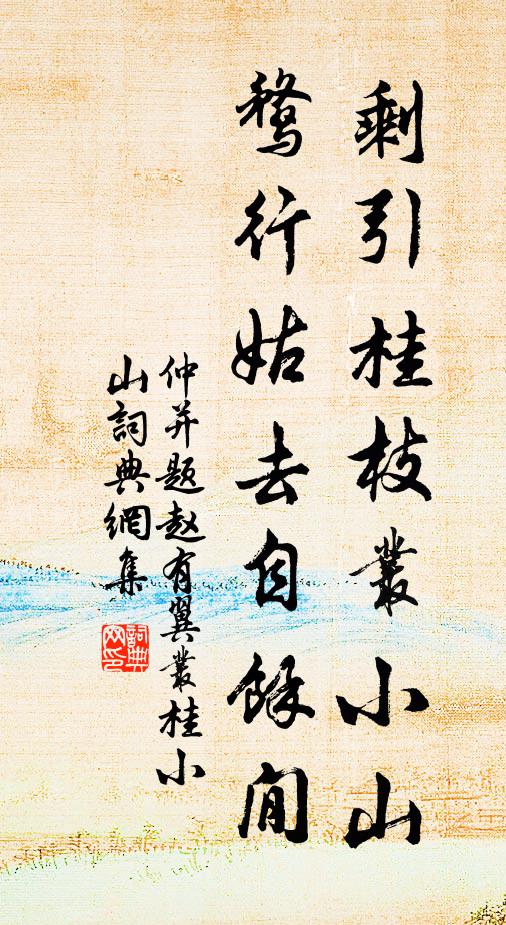 剩引桂枝叢小山
鶩行姑去自餘閒
仲并题赵有翼叢桂小
山詞典網集
詞典
网印